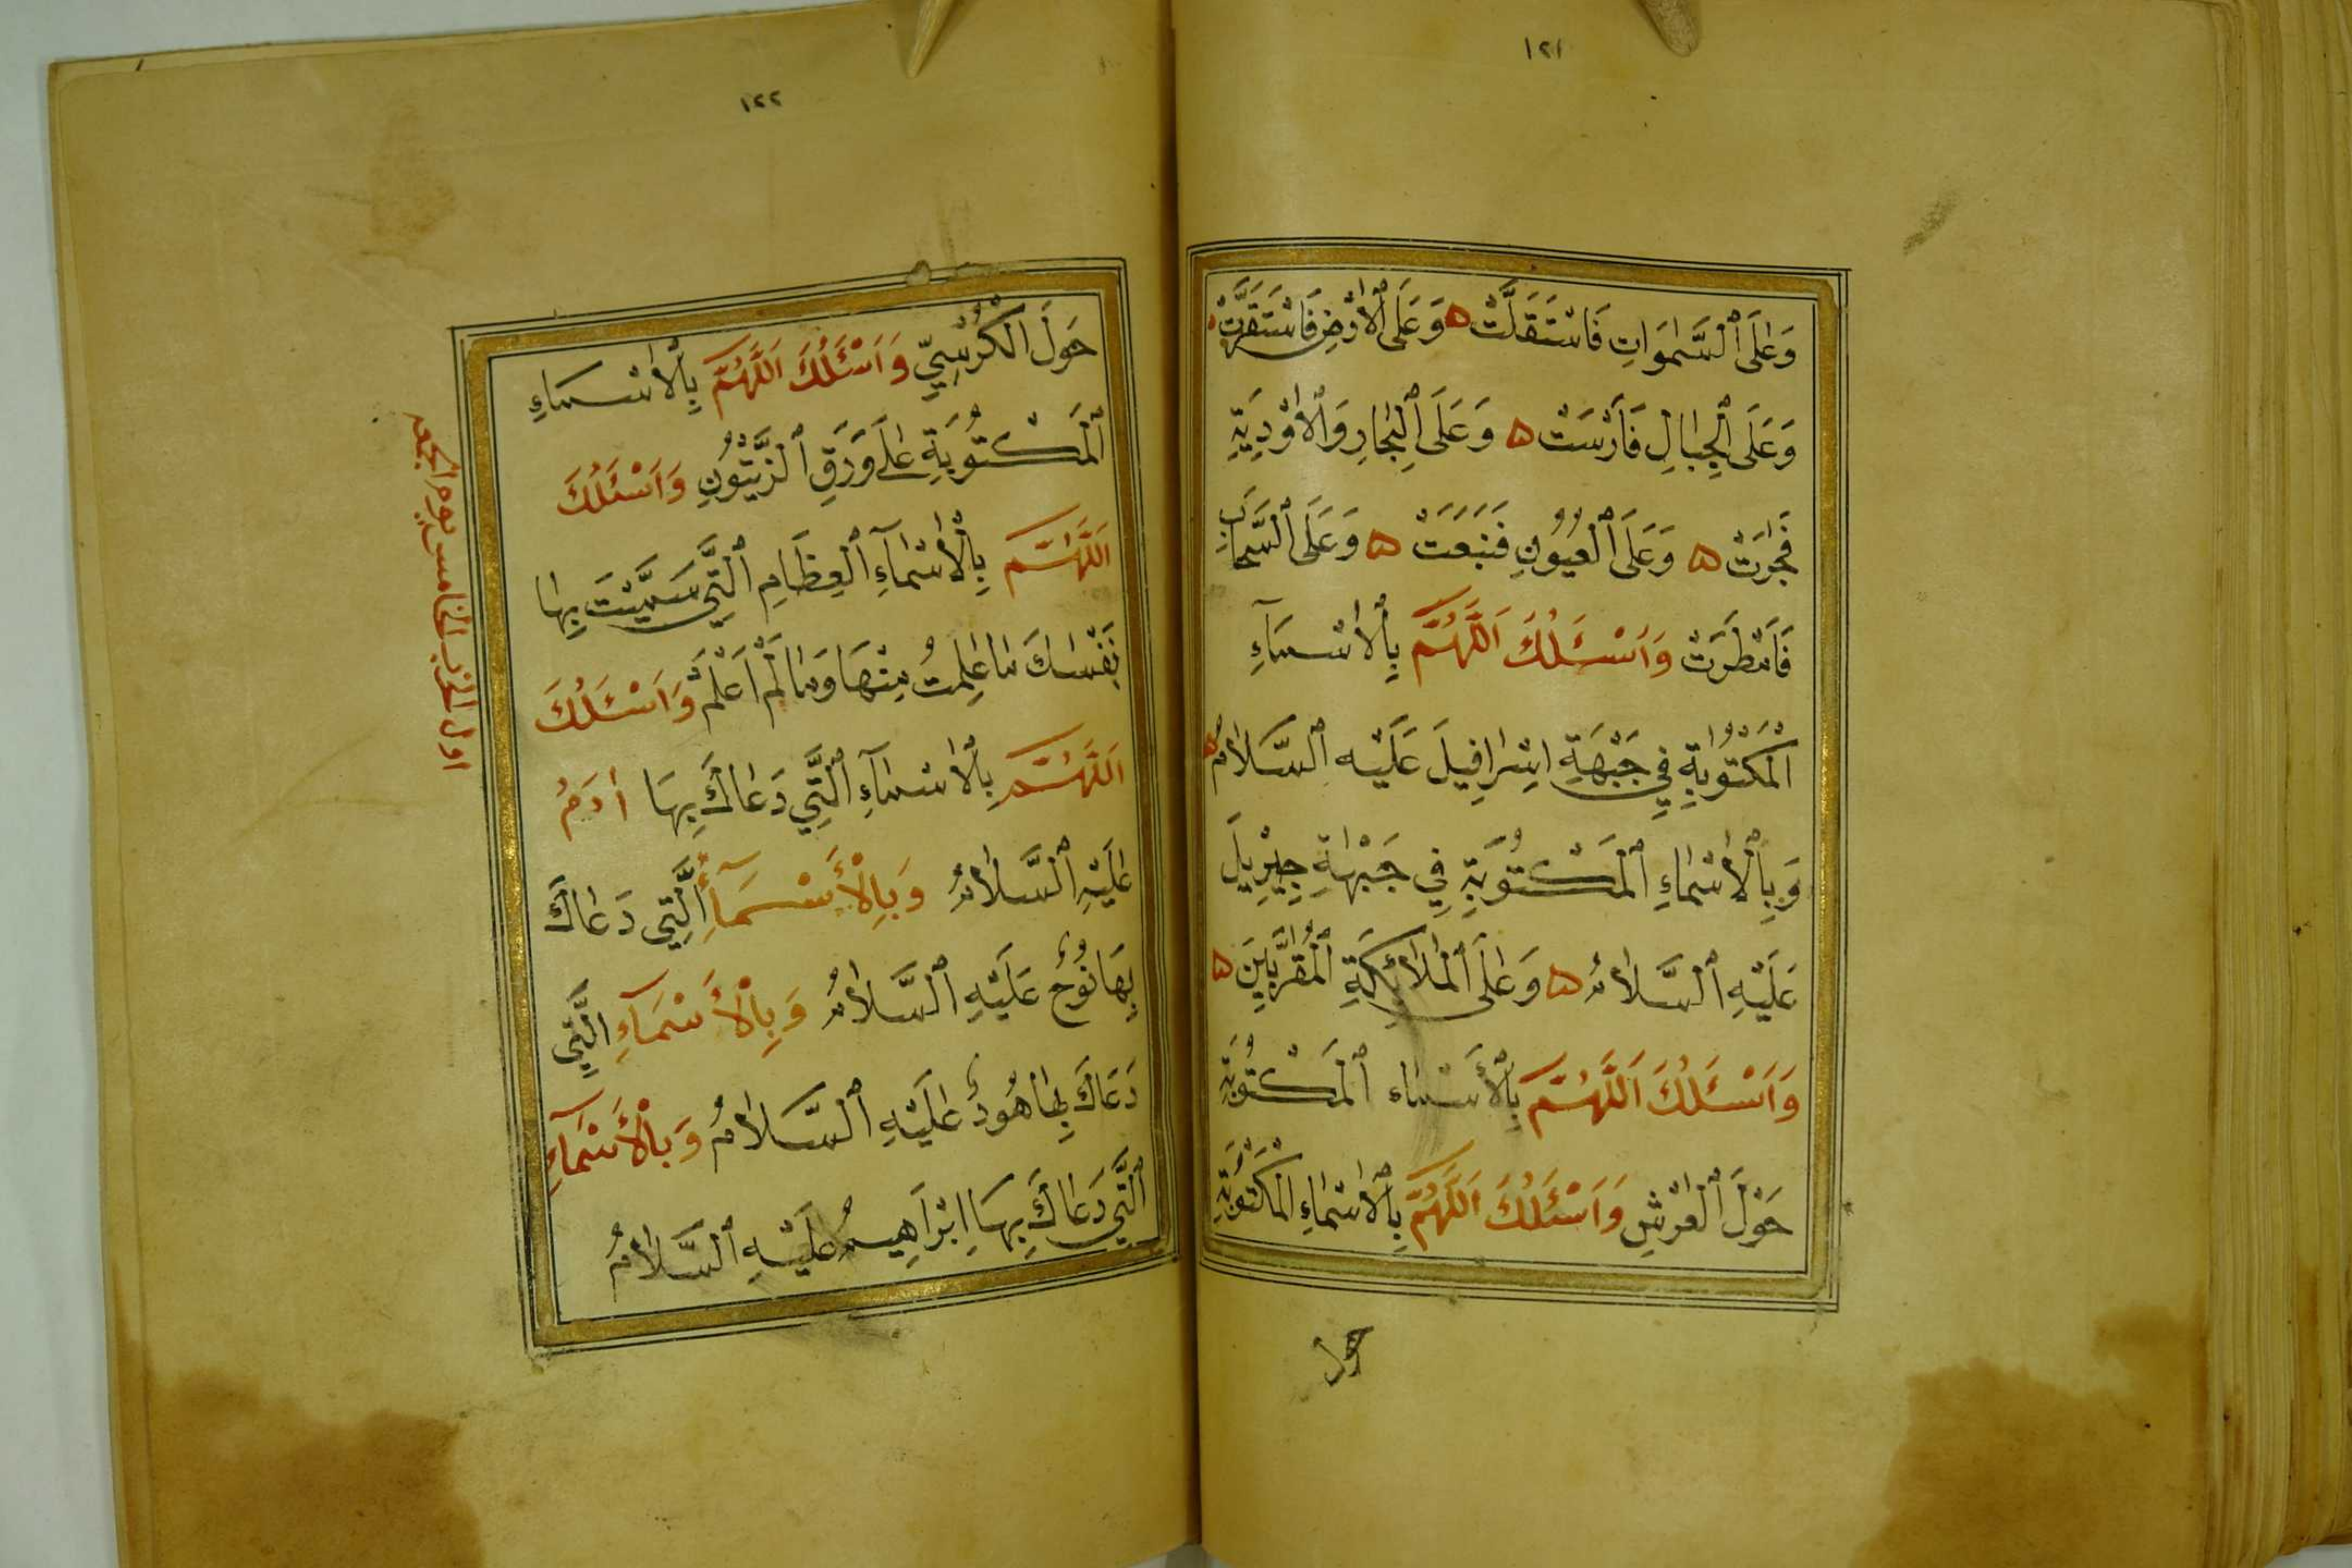 ١٢١
وَعَلَى ٱلسَّمٰوَاتِ فَاسْتَقَلَّتْ ۵ وَعَلَى ٱلْاَرْضِ فَاسْتَقَرَّتْ
وَعَلَى ٱلْجِبَالِ فَاَرْسَتْ ۵ وَعَلَى ٱلْبِحَارِ وَٱلْاَوْدِيَةِ
فَجَرَتْ ۵ وَعَلَى ٱلْعُيُونِ فَنَبَعَتْ ۵ وَعَلَى ٱلسَّحَابِ
فَاَمْطَرَتْ وَاَسْئَلُكَ اَللّٰهُمَّ بِٱلْاَسْمَآءِ
ٱلْمَكْتُوبَةِ فِي جَبْهَةِ اِسْرَافِيلَ عَلَيْهِ ٱلسَّلَامُ
وَبِٱلْاَسْمَاءِ ٱلْمَكْتُوبَةِ فِي جَبْهَةِ جِبْرِيلَ
عَلَيْهِ ٱلسَّلَامُ ۵ وَعَلَى ٱلْمَلَائِكَةِ ٱلْمُقَرَّبِينَ ۵
وَاَسْئَلُكَ اَللّٰهُمَّ بِٱلْأَسْمَاء ٱلْمَكْتُوبَةِ
حَوْلَ ٱلْعَرْشِ وَاَسْئَلُكَ اَللّٰهُمَّ بِٱلْاَسْمَاءِ ٱلْمَكْتُوبَةِ
حول
١٢٢
حَوْلَ ٱلْكُرْسِيِّ وَاَسْئَلُكَ اَللّٰهُمَّ بِٱلْاَسْمَاءِ
ٱلْمَكْتُوبَةِ عَلَى وَرَقِ ٱلزَّيْتُونِ وَاَسْئَلُكَ
اَللّٰهُمَّ بِٱلْاَسْمَآءِ ٱلْعِظَامِ ٱلَّتِي سَمَّيْتَ بِهَا
نَفْسَكَ مَا عَلِمْتُ مِنْهَا وَمَا لَمْ اَعْلَمْ وَاَسْئَلُكَ
اَللّٰهُمَّ بِٱلْاَسْمَآءِ ٱلَّتِي دَعَاكَ بِهَا أدَمُ
عَلَيْهِ ٱلسَّلَامُ وَبِالْأَسْمَآءِ ٱلَّتِي دَعَاكَ
بِهَا نُوحٌ عَلَيْهِ ٱلسَّلَامُ وَبِالْأَسْمَآءِ الَّتِي
دَعَاكَ بِهَا هُودٌ عَلَيْهِ ٱلسَّلَامُ وَبِالْأَسْمَآءِ
ٱلَّتِي دَعَاكَ بِهَا اِبْرَاهِيمُ عَلَيْهِ ٱلسَّلَامُ
اول الحزب الخامس يوم الجمعه